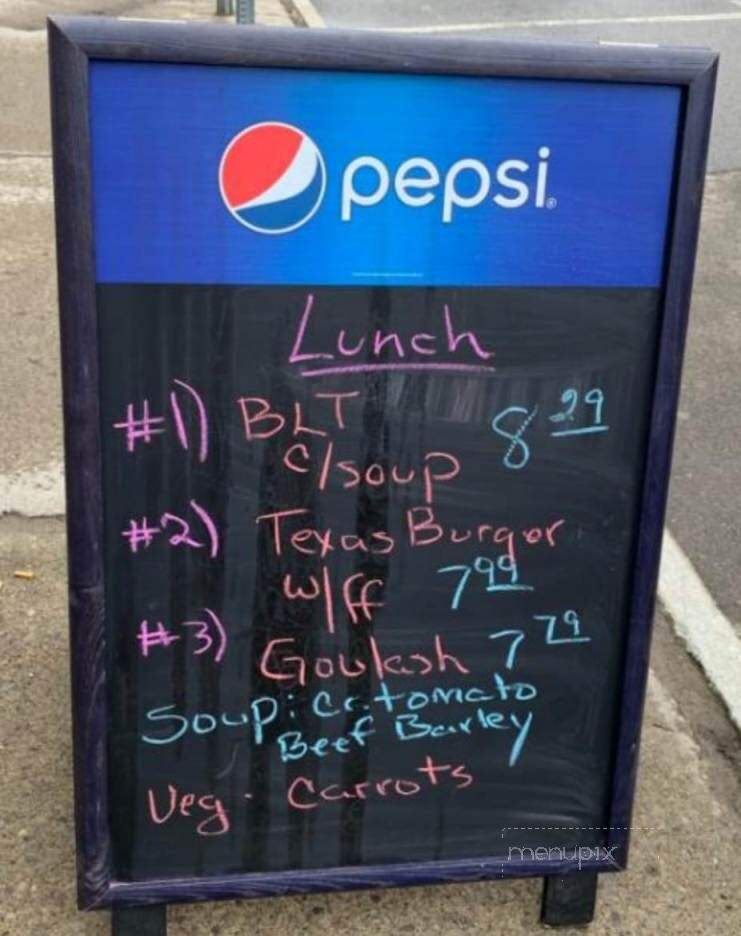 pepsi
Lunch
#1) BLT 8 29
c/soup
#2) Texas Burger
w/ff 7 99
#3) Goulash 7 79
Soup: Cr. tomato
Beef Barley
Veg. Carrots
menupix